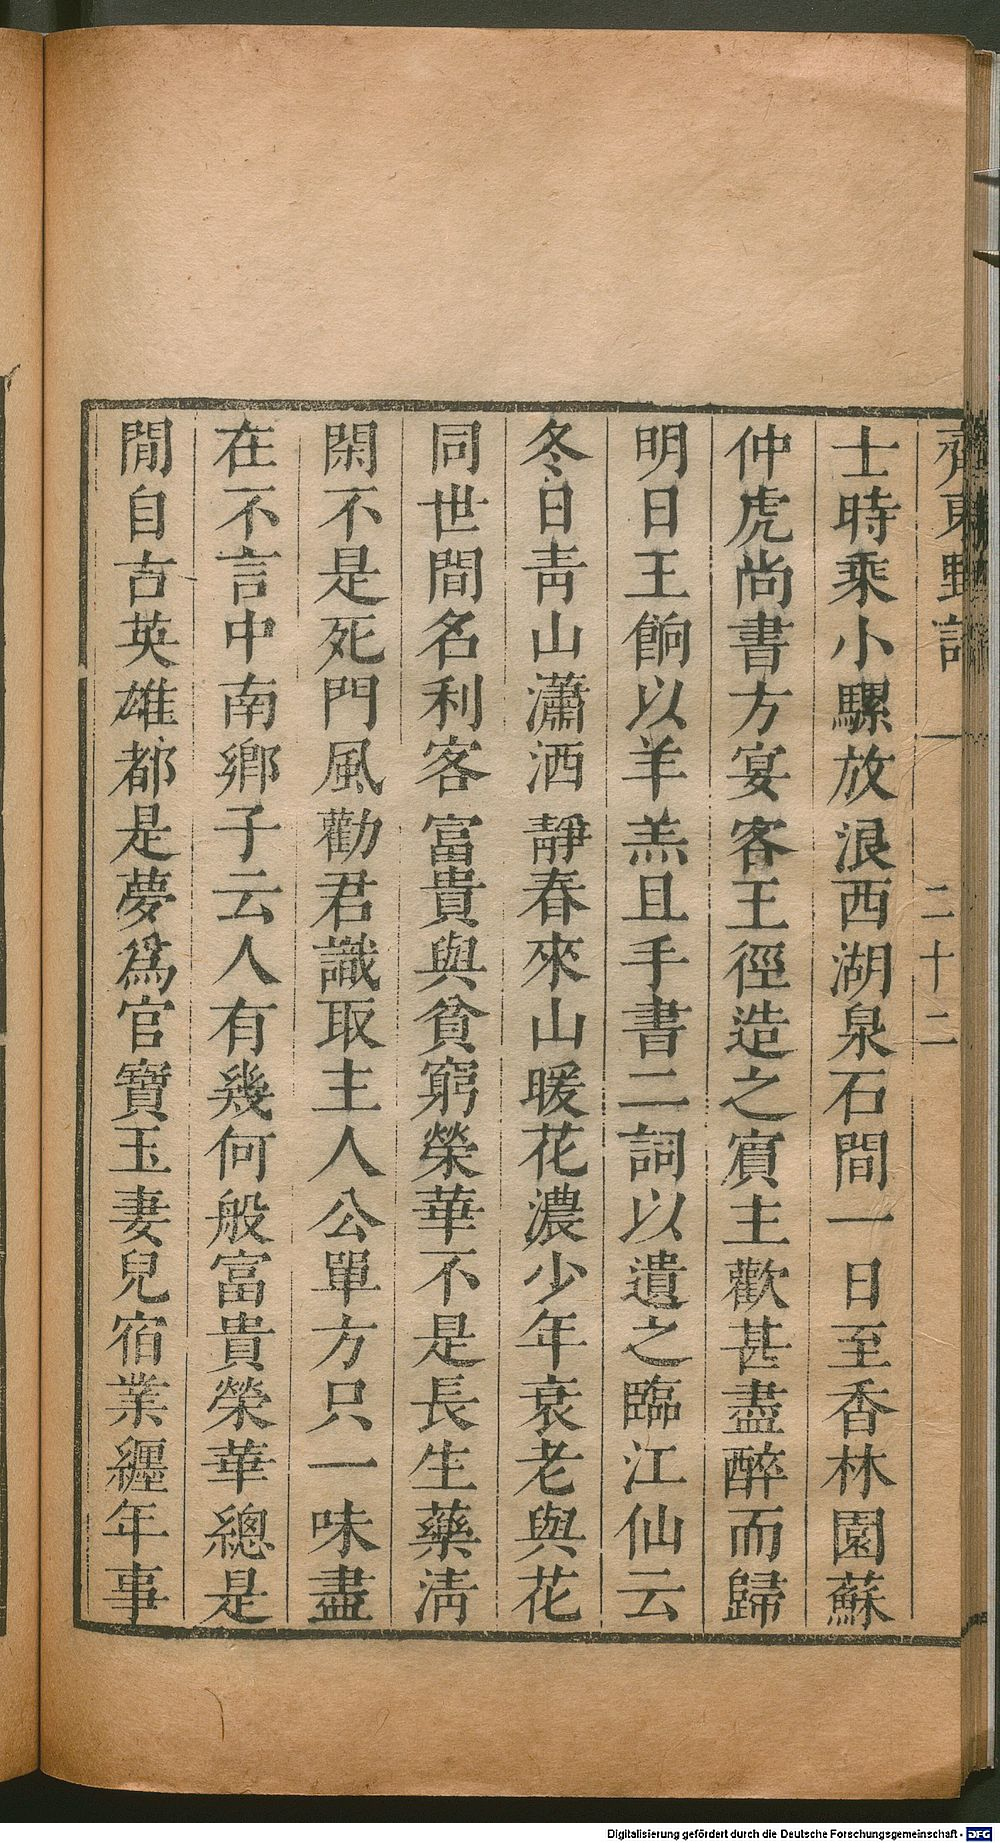 齊東野語 一 二十二
士時乘小騾放浪西湖泉石間一日至香林園蘇
仲虎尚書方宴客王徑造之賓主歡甚盡醉而歸
明日王餉以羊羔且手書二詞以遺之臨江仙云
冬日青山瀟洒靜春來山暖花濃少年衰老與花
同世間名利客富貴與貧窮榮華不是長生藥淸
閑不是死門風勸君識取主人公單方只一味盡
在不言中南鄉子云人有幾何般富貴榮華總是
閒自古英雄都是夢爲官寶玉妻兒宿業纏年事
Digitalisierung gefördert durch die Deutsche Forschungsgemeinschaft - DFG